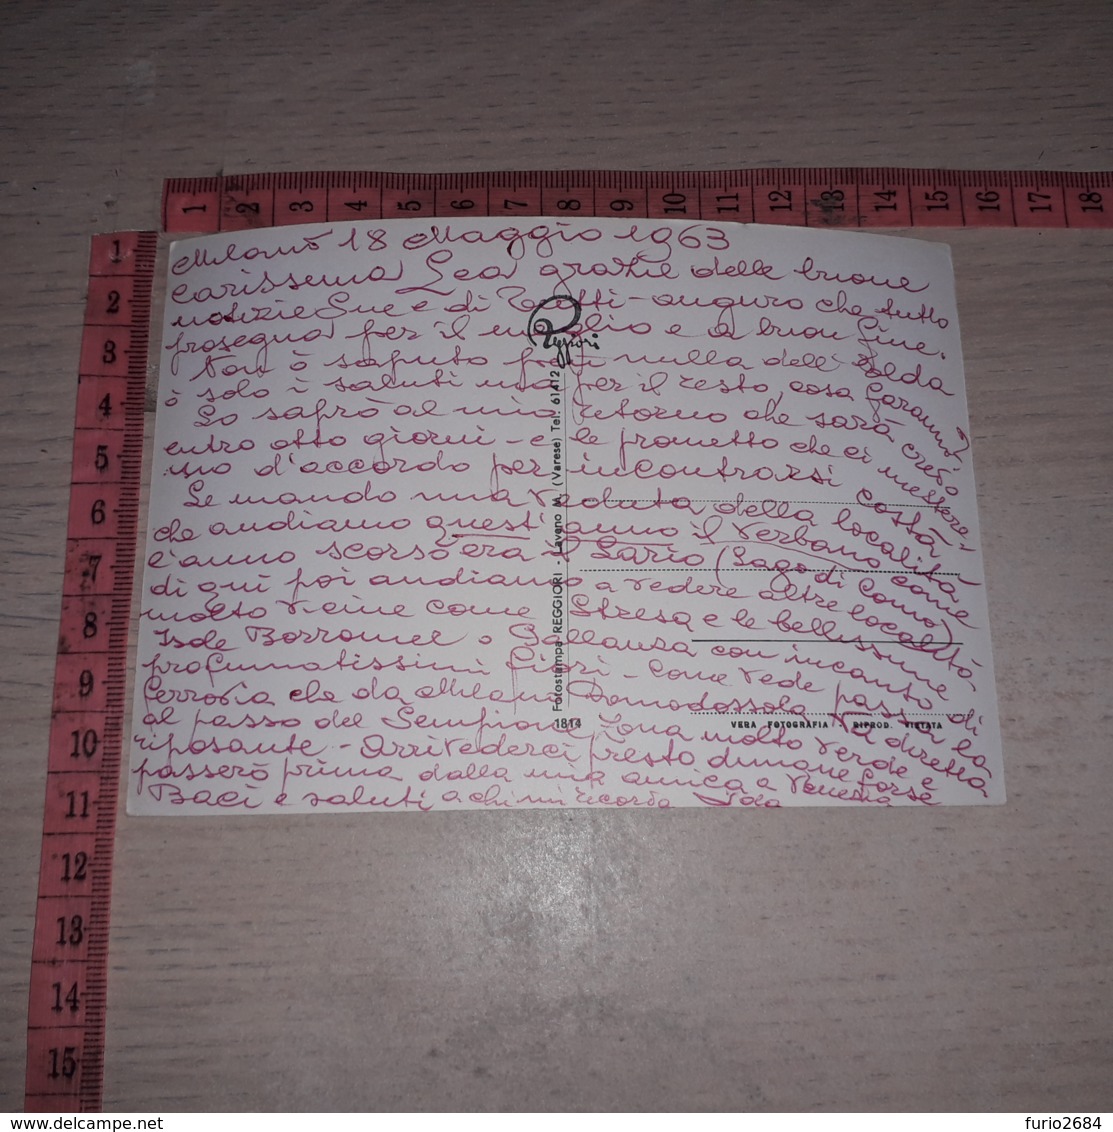 1 2 3 4 5 6 7 8 9 10 11 12 13 14 15 16 17 18
1 2 3 4 5 6 7 8 9 10 11 12 13 14 15
Milano 18 Maggio 1963
Carissima Lea grazie delle buone
notizie Sue e di Tutti - auguro che tutto
prosegua per il meglio e a buon fine.
Non ò saputo più nulla dell'
ò solo i saluti ma per il resto cosa faranno?
Lo saprò al mio ritorno che sarà credo
entro otto giorni - e le prometto che ci mettere-
mo d'accordo per incontrarsi costà.
Le mando una veduta della località
che andiamo questi anno il Verbano come
l'anno scorso era il Lario (Lago di Como)
di qui poi andiamo a vedere altre località
molto vicine come Stresa e le bellissime
Isole Borromee o Pallanza con incanto di
profumatissimi fiori - Come vede passa la
ferrovia che da Milano Domodossola va diretta
al passo del Sempione, zona molto verde e
riposante - Arrivederci presto dunque forse
passerò prima dalla mia amica a Venezia
Baci e saluti a chi mi ricorda
Reggiori
Fotostampa REGGIORI - Laveno M. (Varese) Tel. 61412
1814
VERA FOTOGRAFIA RIPROD. VIETATA
delcampe.net
furio2684